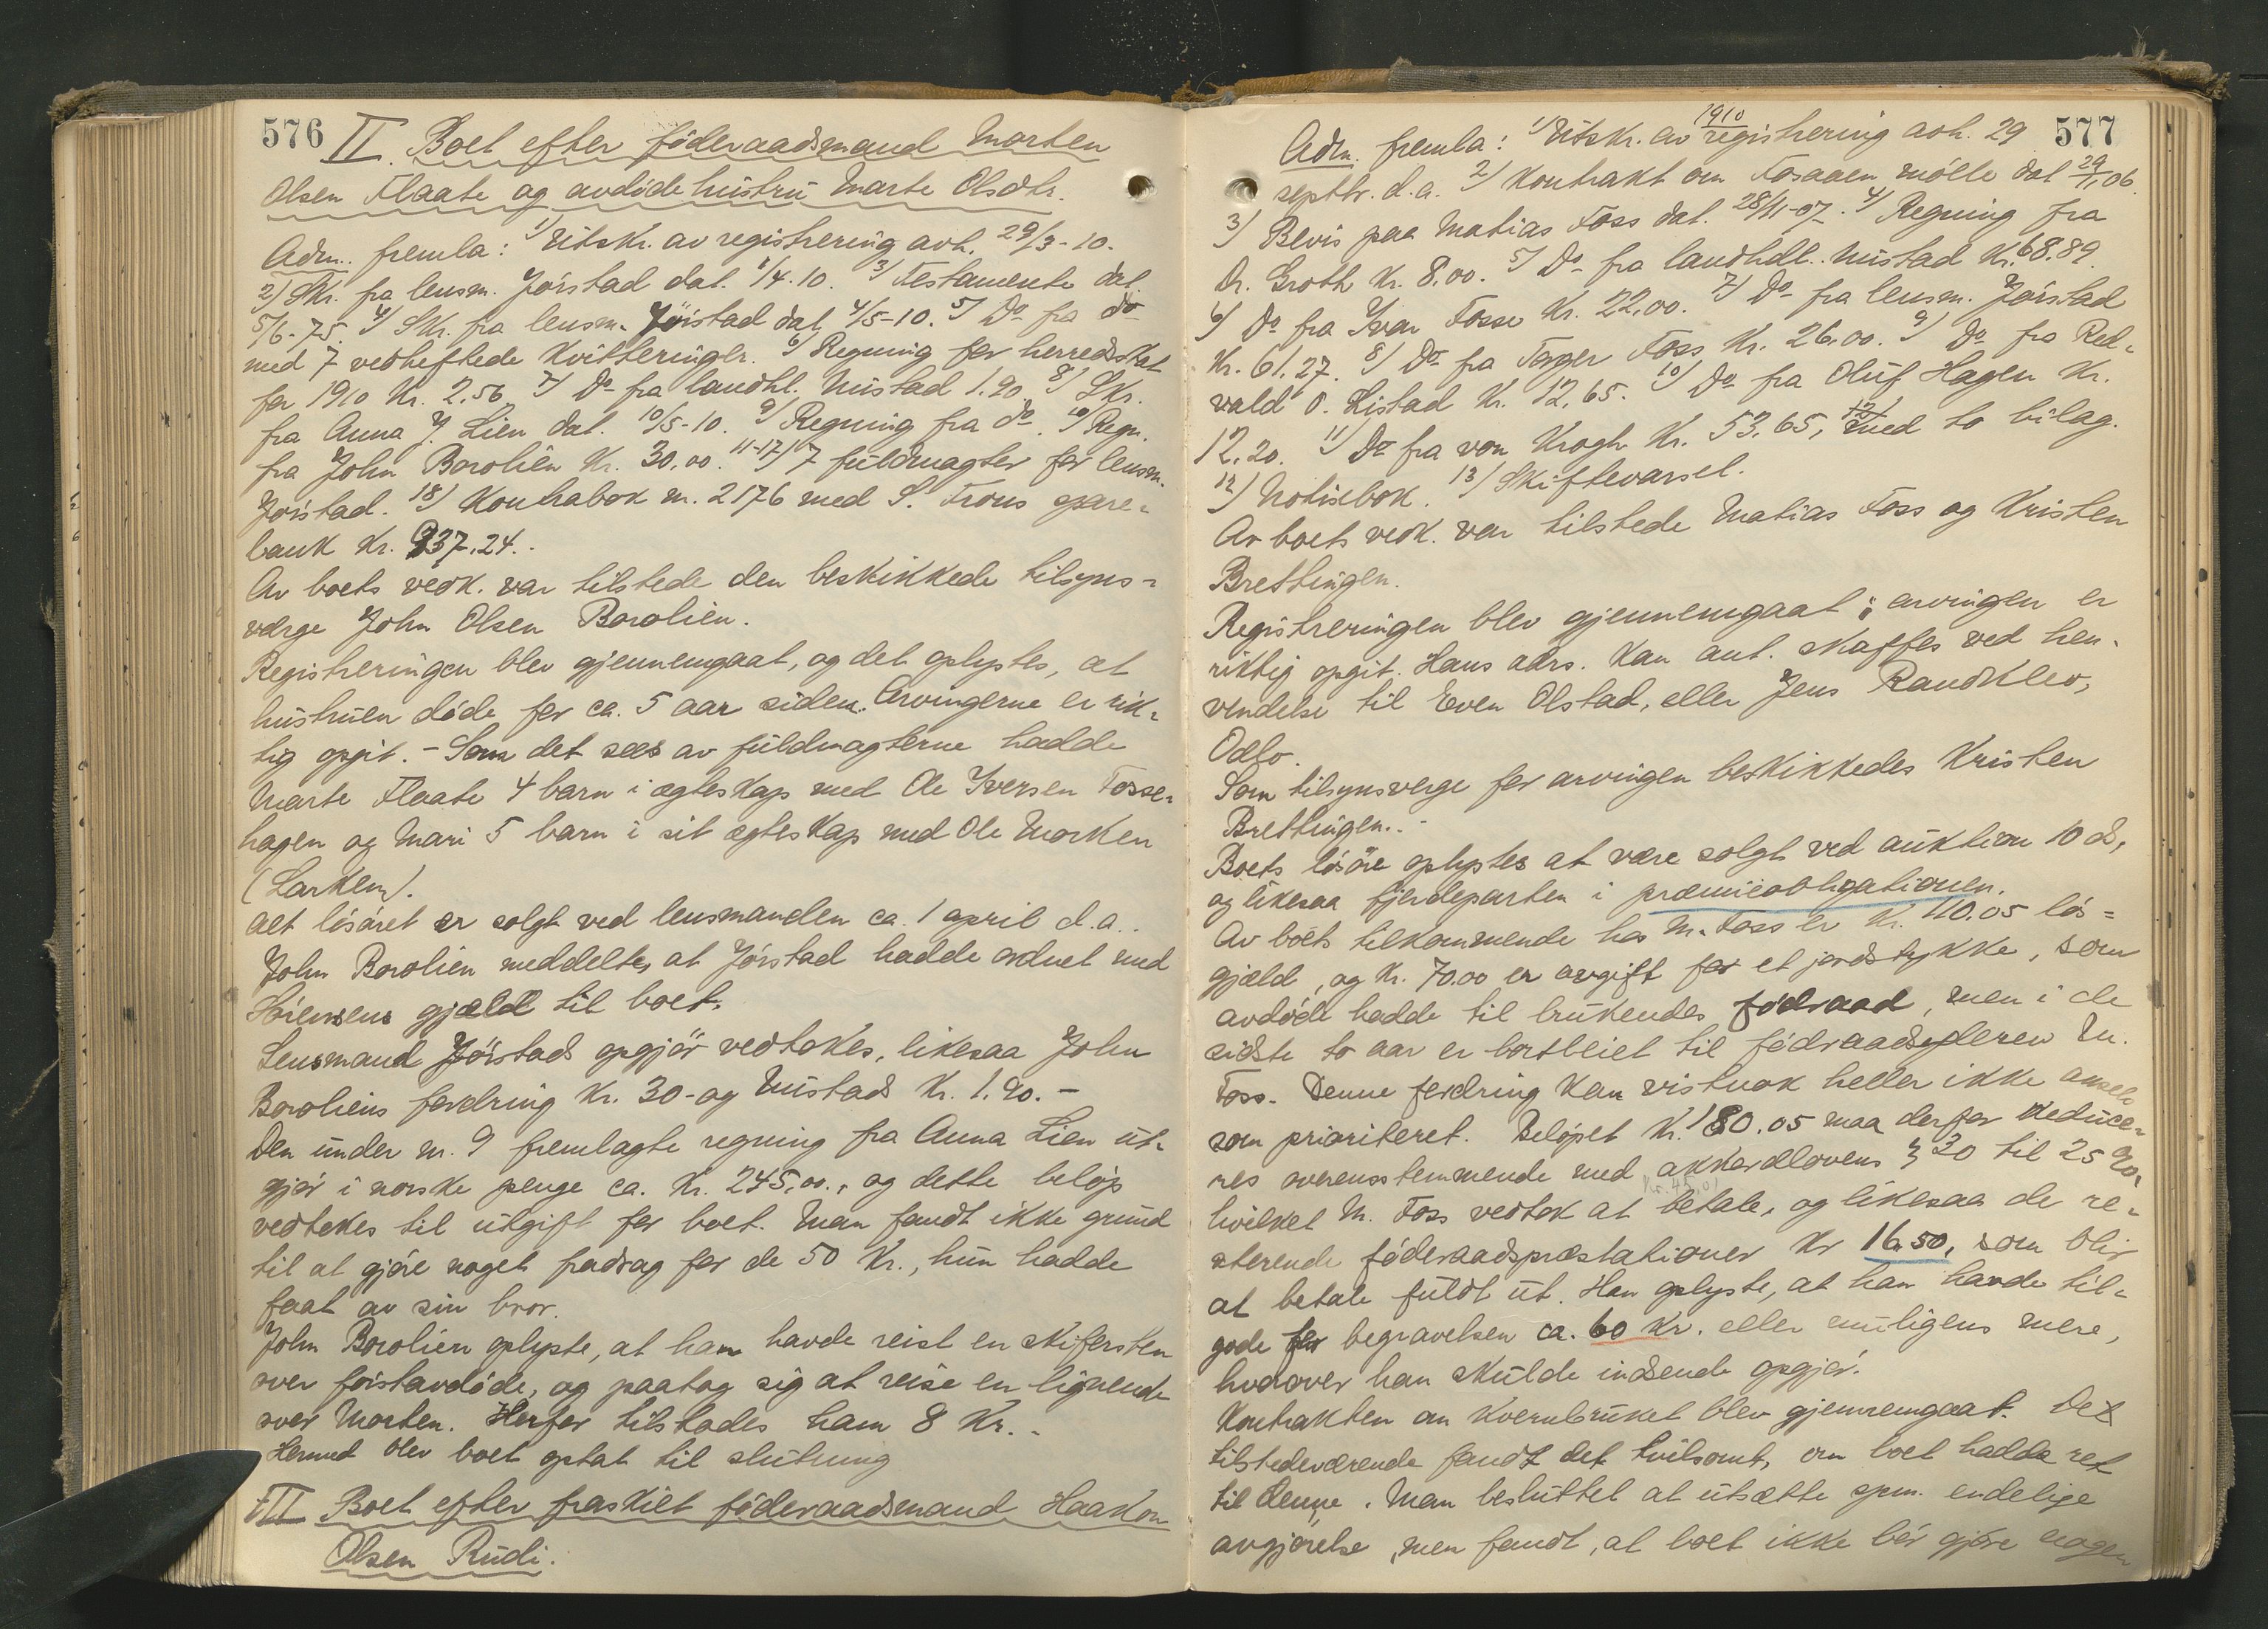 576 II. Boet efter föderaadsmand Morten
Olsen Flaate og avdöde hustru Marte Olsdtr.
Adm. fremla: 1) Utskr. av registrering avh. 29/3-10.
2) Skr. fra lensm. Jörstad dat. 1/4.10. 3) Testamente dat.
5/6-75. 4) Skr. fra lensm. Jörstad dat. 4/5-10. 5) Do fra do
med 7 vedheftede kvitteringer. 6) Regning for herredskat
for 1910 Kr. 2.56 7) Do fra landhl. Mustad 1.90 8) Skr.
fra Anna J. Lien dat. 10/5-10. 9) Regning fra do. 10) Regn.
fra John Borolien Kr. 30,00. 11-17) 7 fuldmagter for lensm.
Jörstad. 18) Kontrabok nr. 2176 med S. Frons spare-
bank Kr. 937.24.
Av boets vedk. var tilstede den beskikkede tilsyns-
værge John Olsen Borolien.
Registreringen blev gjennemgaat, og det oplystes, at
hustruen döde for ca. 5 aar siden. Arvingerne er rik-
tig opgit. - Som det sees av fuldmagterne hadde
Marte Flaate 4 barn i egteskap med Ole Iversen Fosse-
hagen og Mari 5 barn i sit egteskap med Ole Morken
(Larken).
Alt lösöret er solgt ved lensmanden ca. 1 april d.a..
John Borolien meddeltes, at Jörstad hadde ordnet med
gjæld til boet.
Lensmand Jörstads opgjör vedtokes, likesaa John
Boroliens fordring Kr. 30- og Mustads Kr. 1.90. -
Den under nr. 9 fremlagte regning fra Anna Lien ut-
gjör i norske penge ca. Kr. 245,00., og dette belöp
vedtokes til utgift for boet. Man fandt ikke grund
til at gjöre noget fradrag for de 50 Kr., hun hadde
faat av sin bror.
John Borolien oplyste, at han havde reist en skifersten
over förstavdöde, og paatog sig at reise en lignende
over Morten. Herfor tilstodes ham 8 Kr..
Hermed blev boet optat til slutning
III Boet efter fraskilt föderaadsmand Haakon
Olsen Rudi.
577
Adm. fremla: 1) Utskr. av 1910 registrering avh. 29
septbr. d.a. 2) Kontrakt om Fosaaen mölle dat 29/1,06.
3) Bevis paa Matias Foss dat. 28/11-07. 4) Regning fra
Dr. Groth Kr. 8.00. 5) Do fra landhdl. Mustad Kr. 68.89.
6) Do fra Ivar Fosse Kr. 22,00. 7) Do fra lensm. Jörstad
Kr. 61.27. 8) Do fra Torger Foss Kr. 26,00. 9) Do fra Red-
vald O. Listad Kr. 12,65. 10) Do fra Oluf Hagen Kr.
12,20. 11) Do fra von Krogh Kr. 53.65, med to bilag.
12) Notisbok. 13) Skiftevarsel.
Av boets vedk. var tilstede Matias Foss og Kristen
Brettingen.
Registreringen blev gjennemgaat; arvingen er
riktig opgit. Hans adrs. kan ant. skaffes ved hen-
vendelse til Even Olstad, eller Jens Randklev,
Odlo.
Som tilsynsverge for arvingen beskikkedes Kristen
Brettingen..
Boets lösöre oplystes at være solgt ved auktion 10 ds,
og likesaa fjerdeparten i præmieobligationen.
Av boets tilkommende hos M. Foss er Kr. 110.05 lös-
gjæld, og Kr. 70.00 er avgift for et jordstykke, som
avdöde hadde til brukendes födraad, men i de
sidste to aar er bortleiet til födraadsyderen M.
Foss. Denne fordring kan vistnok heller ikke ansees
som prioriteret. Belöpet Kr. 180.05 maa derfor reduce-
res overensstemmende med akkordlovens § 30 til 25 %,
Kr. 45,01
hvilket M. Foss vedtok at betale, og likesaa de re-
sterende föderaadspræstationer Kr 16.50, som blir
at betale fuldt ut. Han oplyste, at han havde til-
gode for begravelsen ca. 60 Kr. eller muligens mere,
hvorover han skulde indsende opgjör.
Kontrakten om kvernbruket blev gjennemgaat. De
tilstedeværende fandt det tvilsomt, om boet hadde ret
til denne. Man besluttet at utsætte spm. endelige
avgjörelse, men fandt, at boet ikke bör gjöre nogen